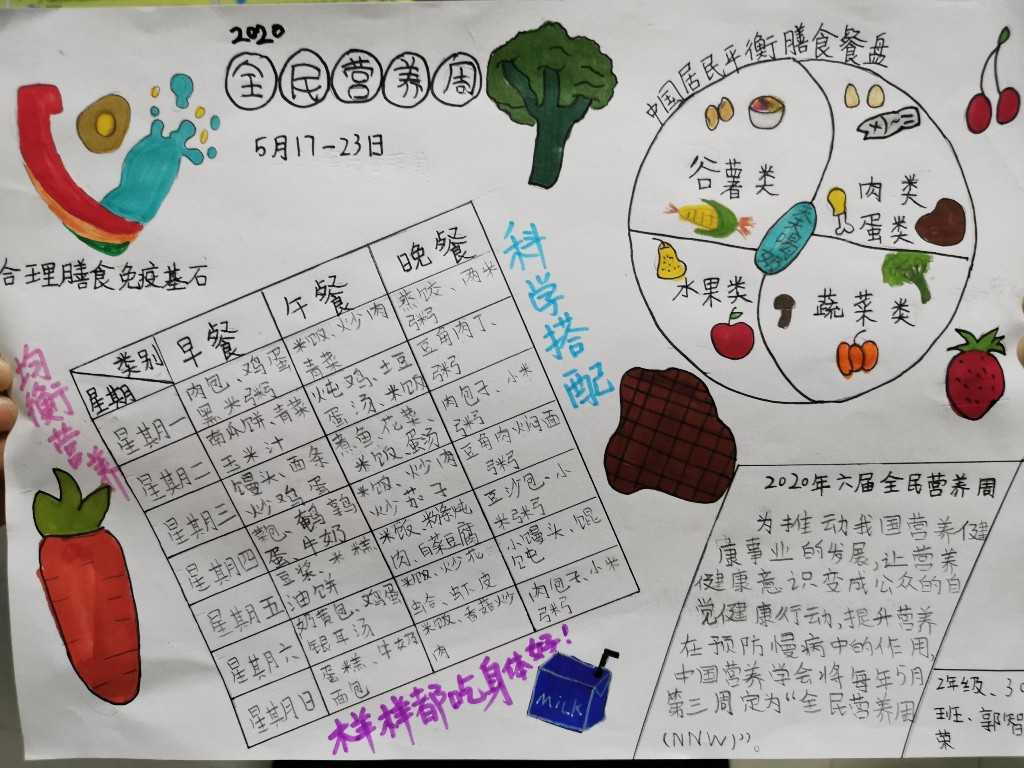 2020
全民营养周
5月17-23日
合理膳食免疫基石
均衡营养
科学搭配
样样都吃身体好！
中国居民平衡膳食餐盘
谷薯类
肉类
蛋类
水果类
蔬菜类
类别
星期
早餐
午餐
晚餐
星期一
肉包、鸡蛋
黑米粥
米饭、炒肉
青菜
米饭、两米
粥
星期二
南瓜饼、青菜
玉米汁
炖鸡、土豆
蛋汤、米饭
豆角肉丁、
粥
星期三
馒头、面条
炒鸡蛋
煮鱼、花菜
米饭、蛋汤
肉包子、小米
粥
星期四
蛋、牛奶
米饭、炒肉
炒茄子
豆角肉焖面
粥
星期五
豆浆、米糕
油饼
米饭、粉条炖
肉、白菜豆腐
豆沙包、小
米粥
星期六
奶黄包、鸡蛋
银耳汤
米饭、炒花
蛤、虾皮
小馒头、馄
饨
星期日
蛋糕、牛奶
面包
米饭、香菇炒
肉
肉包子、小米
粥
MiLK
2020年六届全民营养周
为推动我国营养健
康事业的发展,让营养
健康意识变成公众的自
觉健康行动,提升营养
在预防慢病中的作用,
中国营养学会将每年5月
第三周定为“全民营养周
(NNW)”。
2年级、30
班、郭智
荣